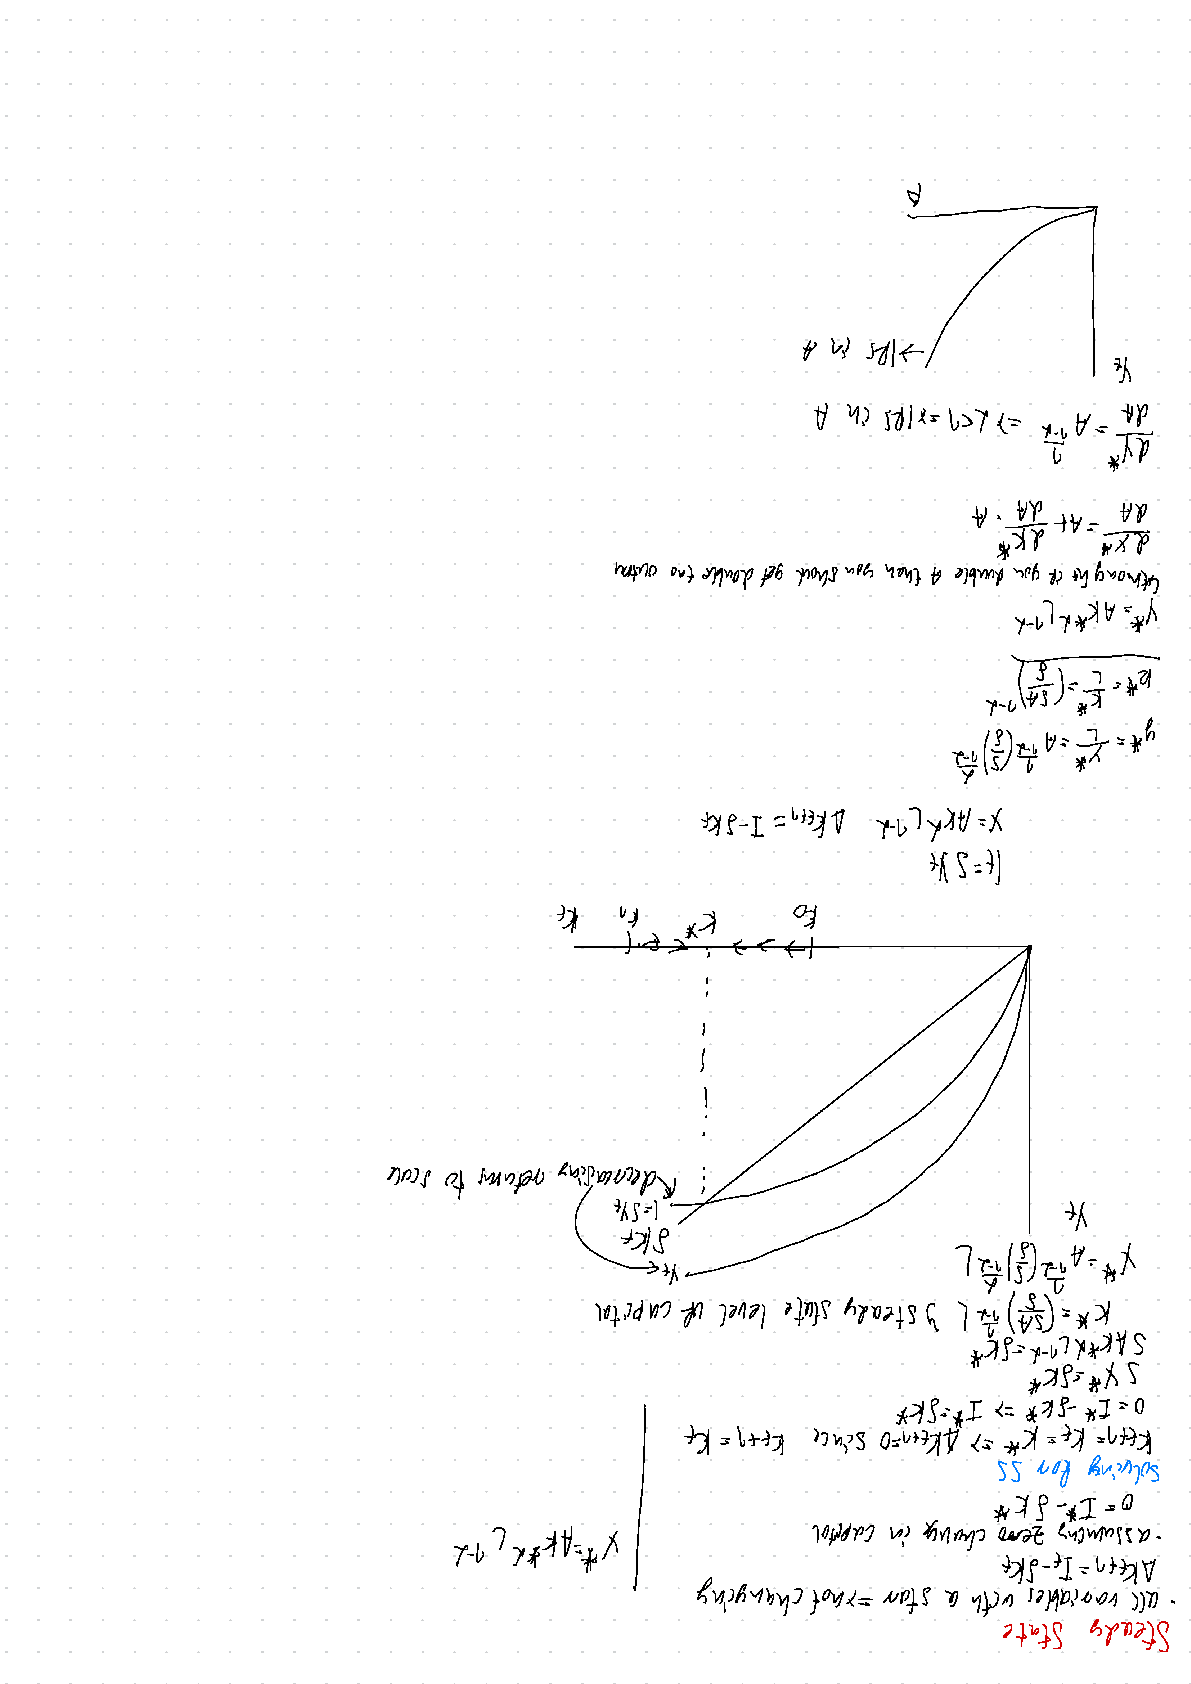 Steady State
· all variables with a star => not changing
ΔKt+1 = It - δKt
· assuming zero change in capital
0 = I* - δK*
Y* = AK*^α L^1-α
Solving for SS
Kt+1 = Kt = K* => ΔKt+1 = 0 since Kt+1 = Kt
0 = I* - δK* => I* = δK*
S Y* = δK*
S A K*^α L^1-α = δK*
K* = (SA/δ)^1/1-α L } steady state level of capital
Y* = A^1/1-α (S/δ)^α/1-α L
Yt
Yt
δKt
I = SYt
decreasing returns to scale
K0 K* K1 Kt
It = S Yt
Y = AK^α L^1-α ΔKt+1 = I - δKt
y* = Y*/L = A^1/1-α (S/δ)^α/1-α
k* = K*/L = (SA/δ)^1-α
Y* = AK*^α L^1-α
if you double A then you should get double the
dY*/dA = A + dK*/dA · A
dY*/dA = A^1/1-α => α<1 => IRS in A
Yt
-> IRS in A
A